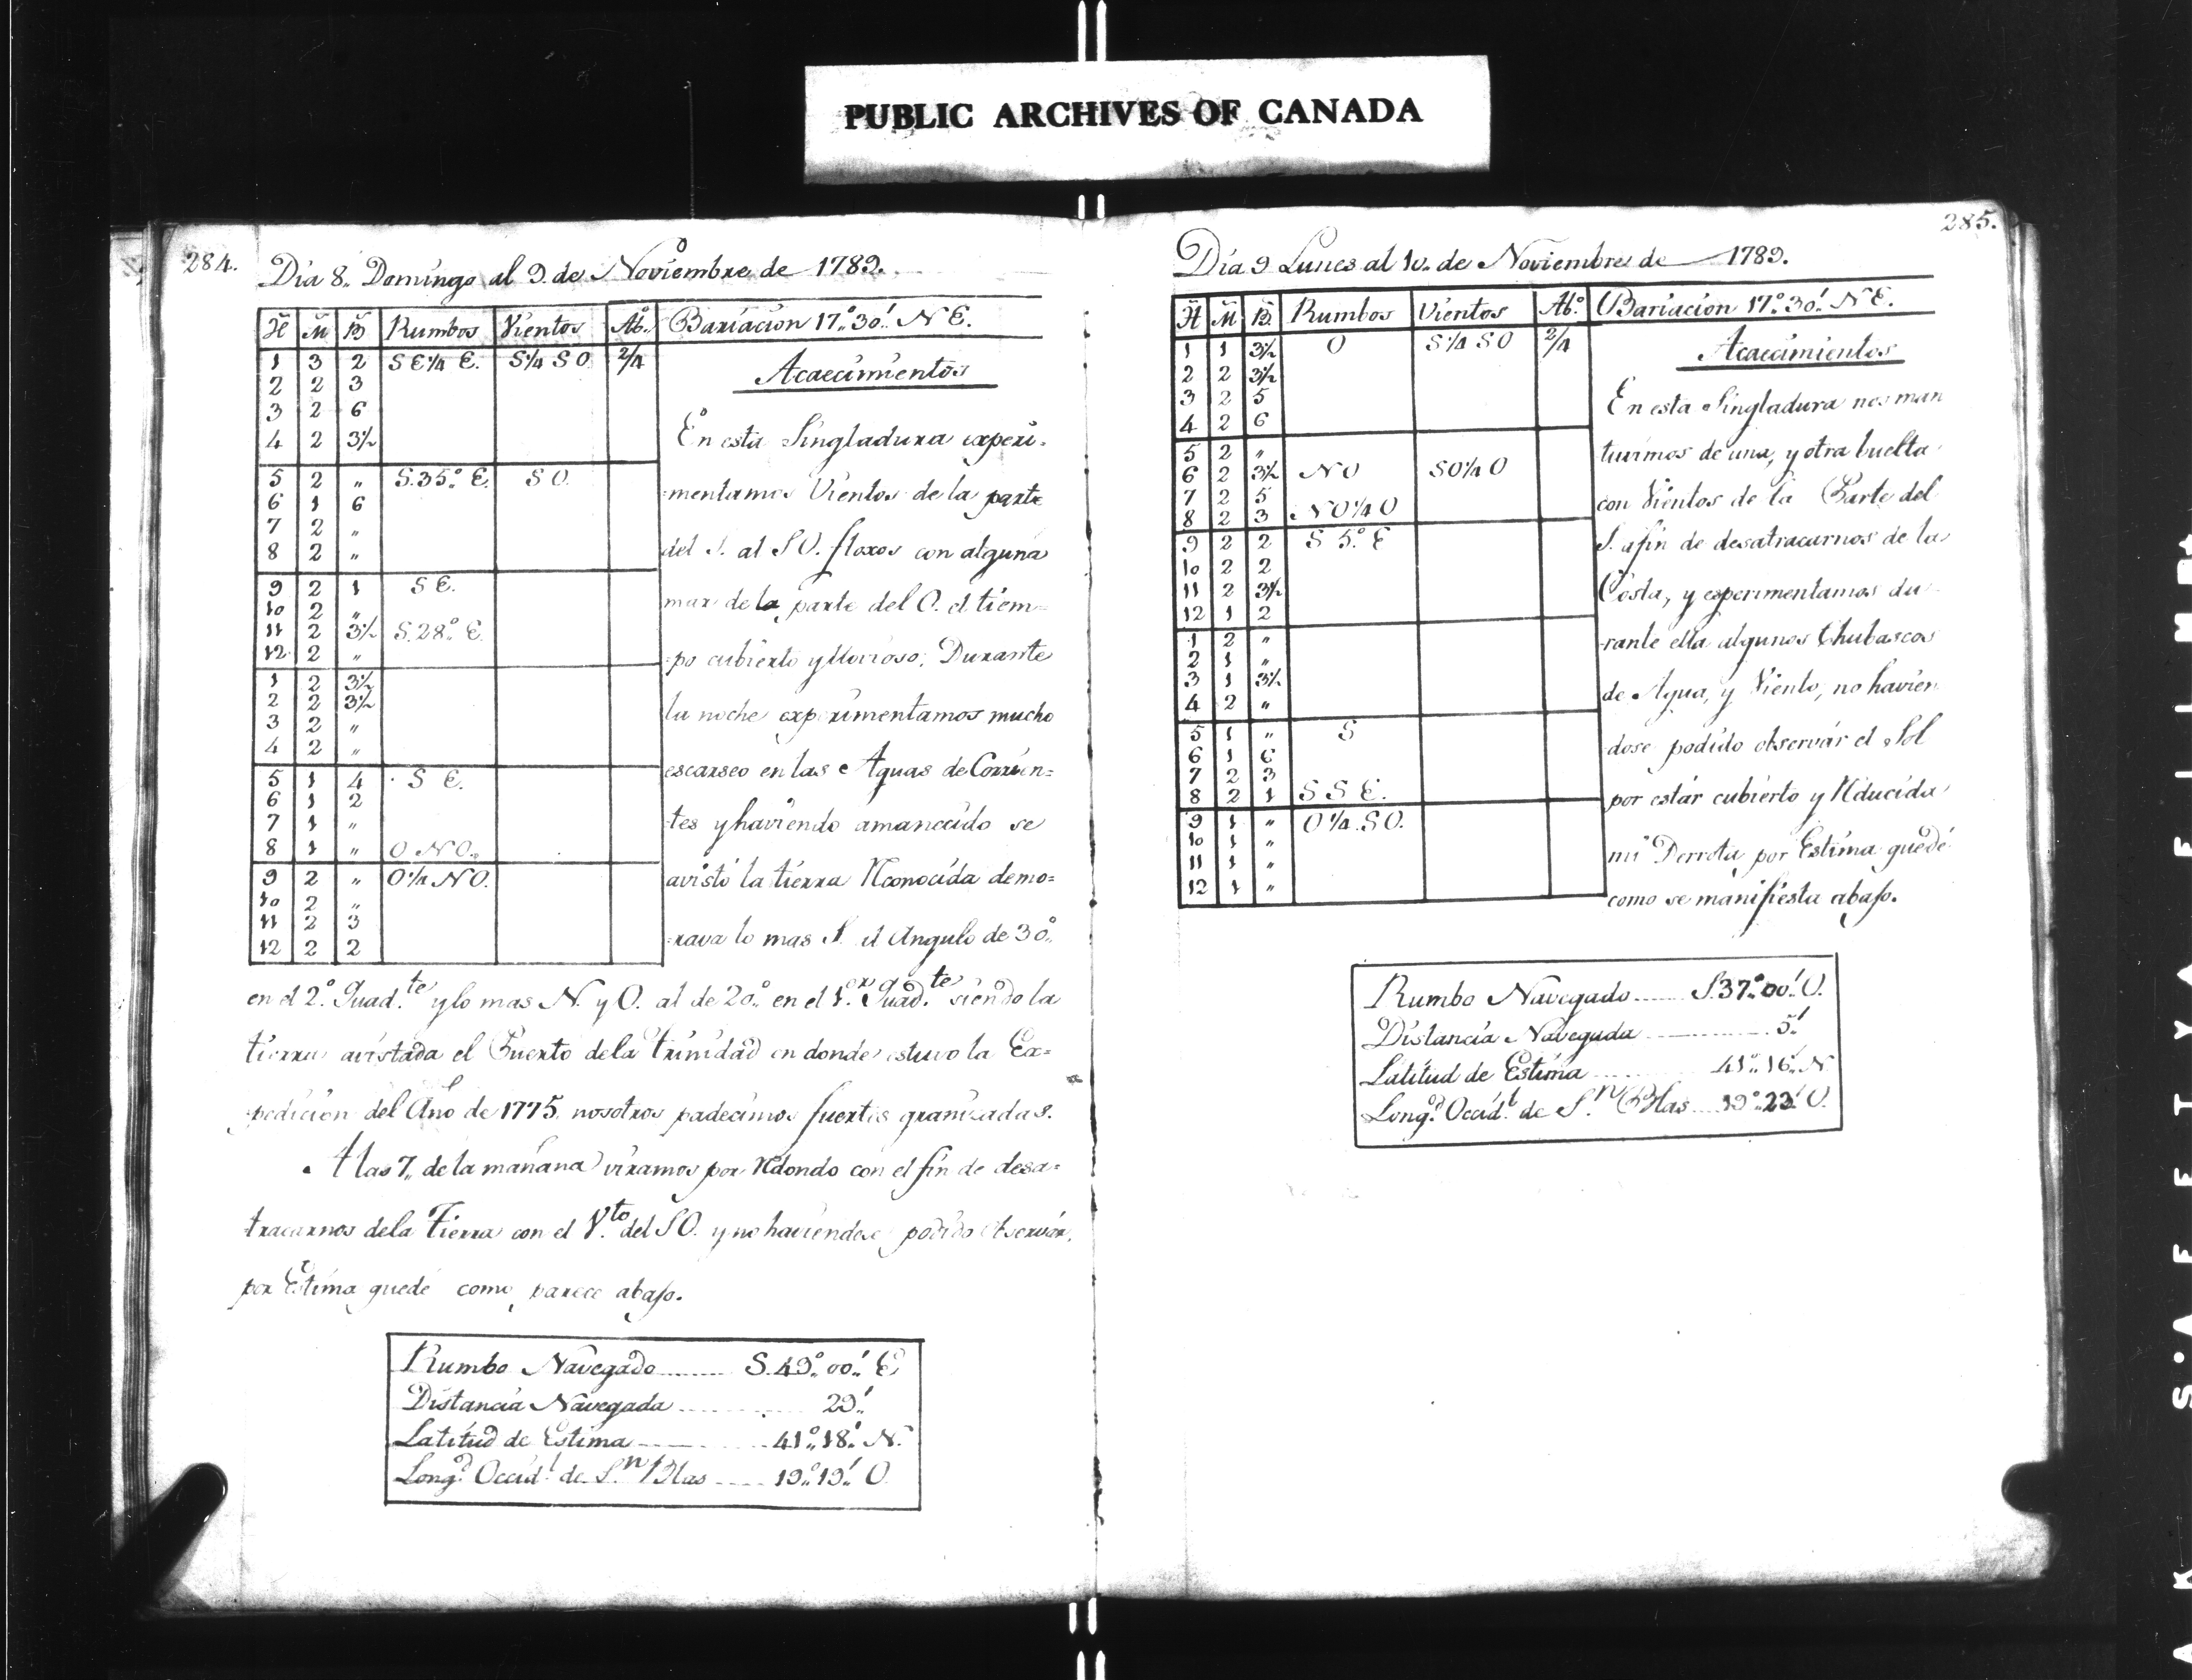 PUBLIC ARCHIVES OF CANADA
284.
Dia 8,, Domingo al 9 de Noviembre de 1789.
H M B Rumbos Vientos Ab.º Bariacion 17,,º 30,,' N E.
1 3 2 S E 1/4 E. S 1/4 S O 2/4
2 2 3
3 2 6
4 2 3½
5 2 ,, S. 35,,º E. S O.
6 1 6
7 2 ,,
8 2 ,,
9 2 1 S E.
10 2 ,,
11 2 3½ S. 28,,º E.
12 2 ,,
1 2 3½
2 2 3½
3 2 ,,
4 2 ,,
5 1 4 S E.
6 1 2
7 1 ,,
8 1 ,, O N O.
9 2 ,, O 1/4 N O.
10 2 ,,
11 2 3
12 2 2
Acaecimientos
En esta Singladura experi-
mentamos Vientos de la parte
del S. al S O. floxos con alguna
mar de la parte del O. el tiem=
=po cubierto y llovioso; Durante
la noche experimentamos mucho
escarseo en las Aguas de Corrien=
=tes y haviendo amanecido se
avistó la tierra Rconocida demo=
=rava lo mas S. el Angulo de 30,,º
en el 2.º Quad.te y lo mas N. y O. al de 20,,º en el 1.er Quad.te siendo la
tierra avistada el Puerto de la trinidad en donde estuvo la Ex=
=pedicion del Año de 1775. nosotros padecimos fuertes granizadas.
A las 7,, de la mañana viramos por Rdondo con el fin de desa=
tracarnos de la Tierra con el V.to del S O. y no haviendose podido observar,
por Estima quedé como parece abajo.
Rumbo Navegado ........ S. 49,,º 00,,' E
Distancia Navegada ........ 29,,'
Latitud de Estima ........ 41,,º 18,,' N.
Long.d Occid.l de S.n Blas ..... 19,,º 19,,' O.
285.
Dia 9 Lunes al 10,, de Noviembre de 1789.
H M B. Rumbos Vientos Ab.º Bariacion 17,,º 30,,' N E.
1 1 3½ O S 1/4 S O 2/4
2 2 3½
3 2 5
4 2 6
5 2 ,,
6 2 3½ N O S O 1/4 O
7 2 5
8 2 3 N O 1/4 O
9 2 2 S 5,,º E
10 2 2
11 2 3½
12 1 2
1 2 ,,
2 1 ,,
3 1 3½
4 2 ,,
5 1 ,, S
6 1 6
7 2 3
8 2 1 S S E.
9 1 ,, O 1/4 S O.
10 1 ,,
11 1 ,,
12 1 ,,
Acaecimientos
En esta Singladura nos man
tuvimos de una, y otra buelta
con Vientos de la Parte del
S. afin de desatracarnos de la
Costa, y experimentamos du-
-rante ella algunos Chubascos
de Agua, y Viento, no havien
dose podido observár el Sol
por estár cubierto y Rducida
mi Derrota por Estima quedé
como se manifiesta abajo.
Rumbo Navegado ..... S. 37,,º 00,,' O.
Distancia Navegada ........ 5,,'
Latitud de Estima ........ 41,,º 16,,' N
Long.d Occid.l de S.n Blas .... 19,,º 23,,' O.